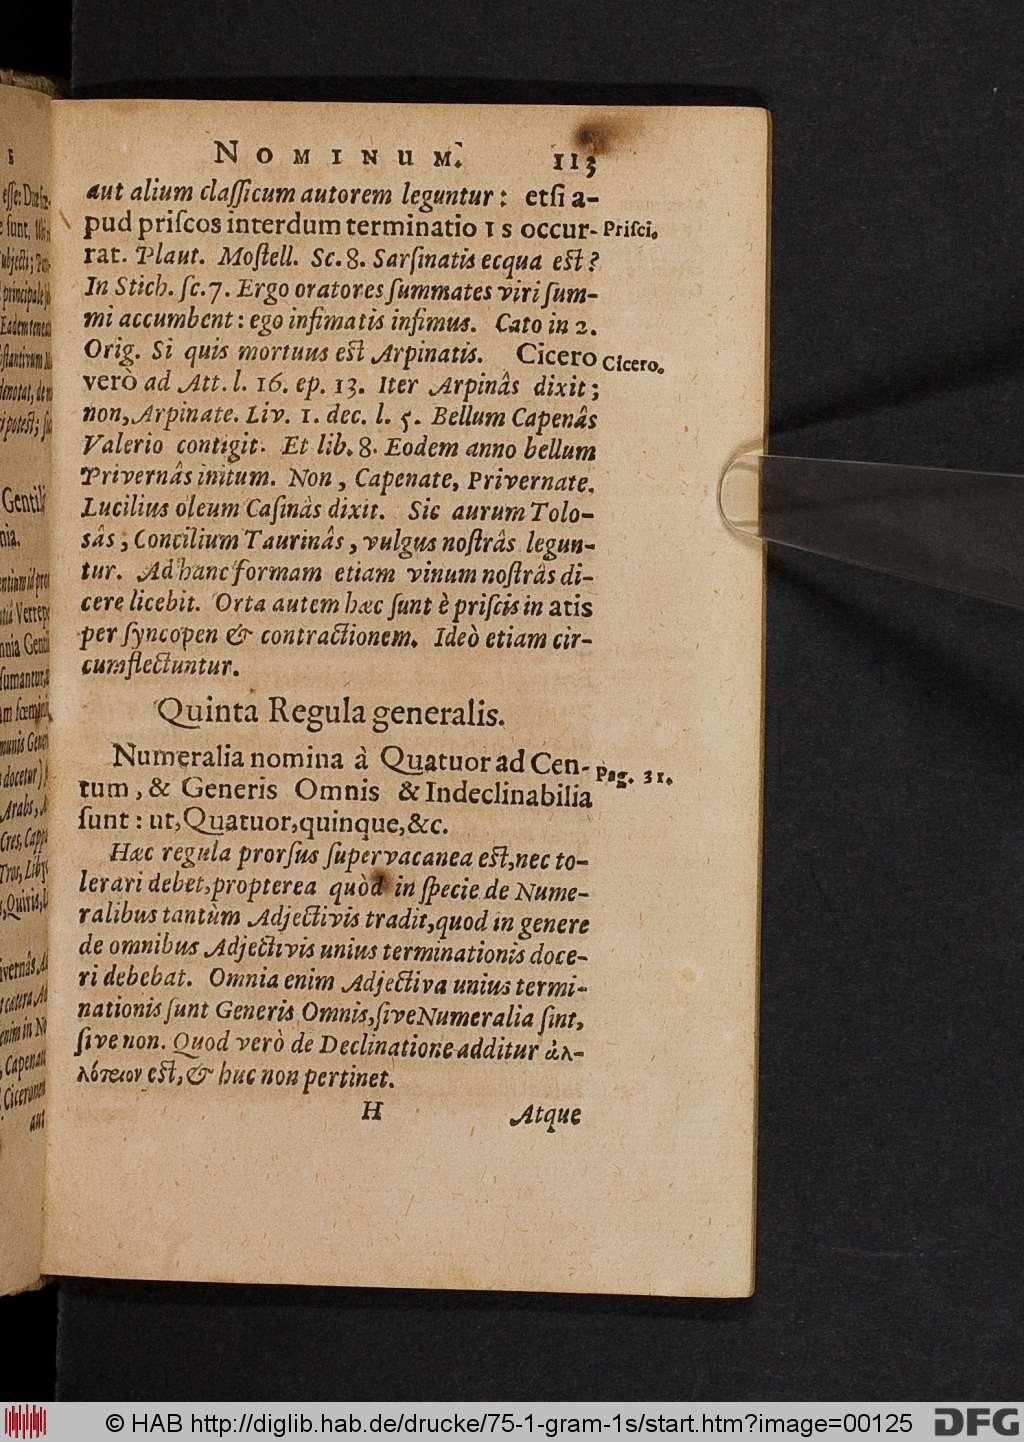 NOMINUM. 113
aut alium claſſicum autorem leguntur: etſi a-
pud priſcos interdum terminatio IS occur- Priſci.
rat. Plaut. Moſtell. Sc. 8. Sarſinatis ecqua eſt?
In Stich. ſc. 7. Ergo oratores ſummates viri ſum-
mi accumbent: ego infimatis infimus. Cato in 2.
Orig. Si quis mortuus eſt Arpinatis. Cicero Cicero.
verò ad Att. l. 16. ep. 13. Iter Arpinâs dixit;
non, Arpinate. Liv. 1. dec. l. 5. Bellum Capenâs
Valerio contigit. Et lib. 8. Eodem anno bellum
Privernâs initum. Non, Capenate, Privernate.
Lucilius oleum Caſinâs dixit. Sic aurum Tolo-
sâs, Concilium Taurinâs, vulgus noſtrâs legun-
tur. Ad hanc formam etiam vinum noſtrâs di-
cere licebit. Orta autem hæc ſunt è priſcis in atis
per ſyncopen & contractionem. Ideò etiam cir-
cumflectuntur.
Quinta Regula generalis.
Numeralia nomina à Quatuor ad Cen- Pag. 31.
tum, & Generis Omnis & Indeclinabilia
ſunt: ut, Quatuor, quinque, &c.
Hæc regula prorſus ſupervacanea eſt, nec to-
lerari debet, propterea quòd in ſpecie de Nume-
ralibus tantùm Adjectivis tradit, quod in genere
de omnibus Adjectivis unius terminationis doce-
ri debebat. Omnia enim Adjectiva unius termi-
nationis ſunt Generis Omnis, ſive Numeralia ſint,
ſive non. Quod verò de Declinatione additur ἀλ-
λότριον eſt, & huc non pertinet.
H Atque
© HAB http://diglib.hab.de/drucke/75-1-gram-1s/start.htm?image=00125 DFG